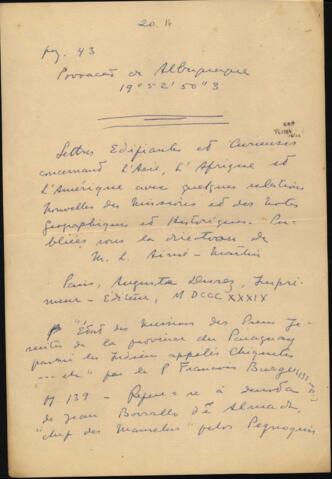 20.14
pg. 43
Povoação de Albuquerque
19° 52' 50" 3
Lettres Edifiantes et Curieuses
concernant l'Asie, l'Afrique et
l'Amérique avec quelques relations
nouvelles des missions et des notes
geographiques et historiques. Pu-
bliées sous la direction de
M. L. Aimé-Martin
Paris, Auguste Desrez, Impri-
meur-Editeur, M DCCC XXXIX
"État des missions des Pères Jé-
suites de la province du Paraguay
parmi les Indiens appelés Chiquites
---- etc" par le P Francois Burges
P 139 - Refere-se à derrota
de Jean Borrallo d'Almada,
"chef des Mamelus" pelos Pegnoquis